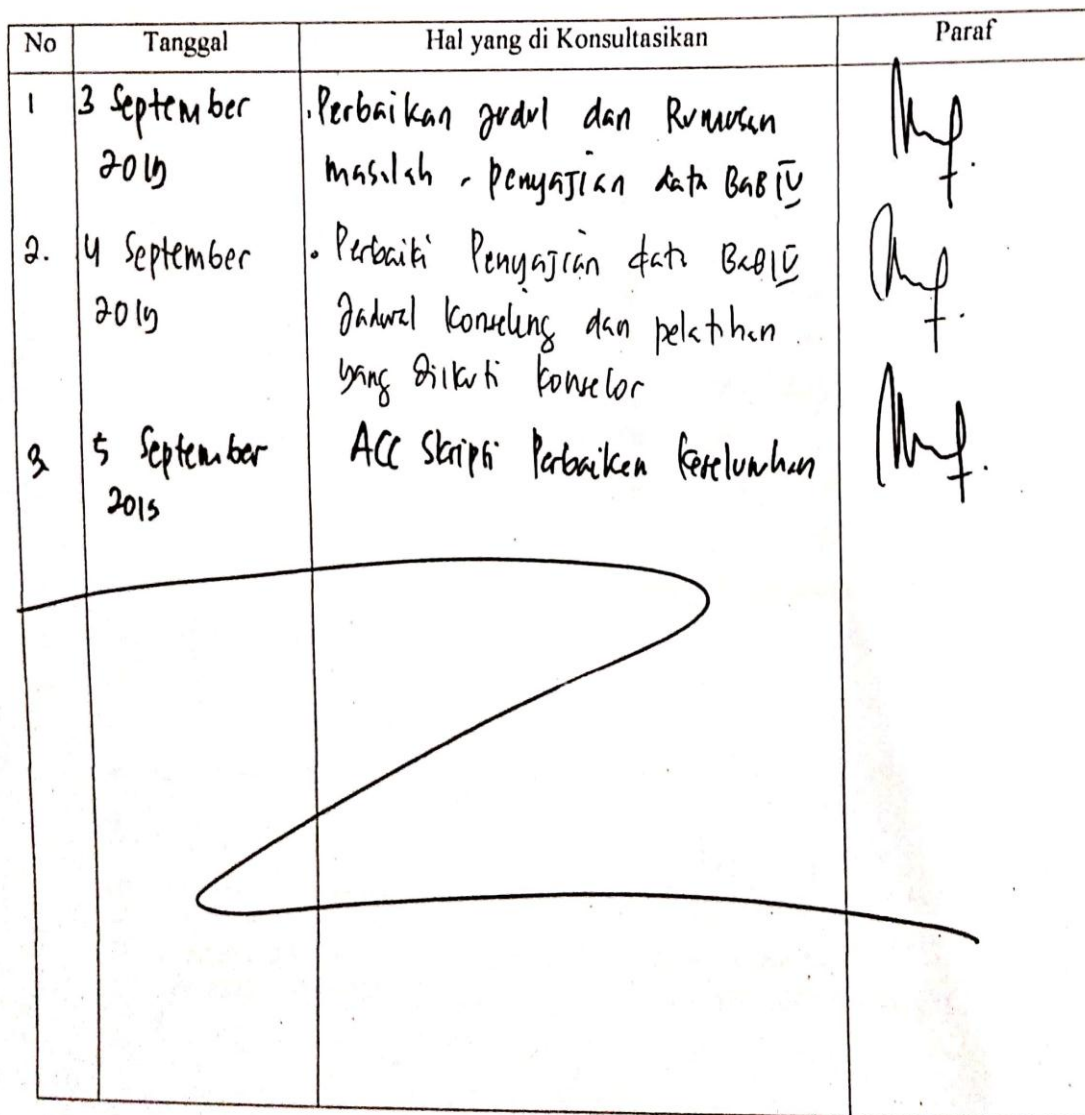 No Tanggal Hal yang di Konsultasikan Paraf
1 3 September .Perbaikan Judul dan Rumusan
2019 masalah, penyajian data BAB IV
2. 4 September . Perbaiki Penyajian data BAB IV
2019 Jadwal Konseling dan pelatihan
yang diikuti konselor
3 5 September ACC Skripsi Perbaikan Keseluruhan
2019